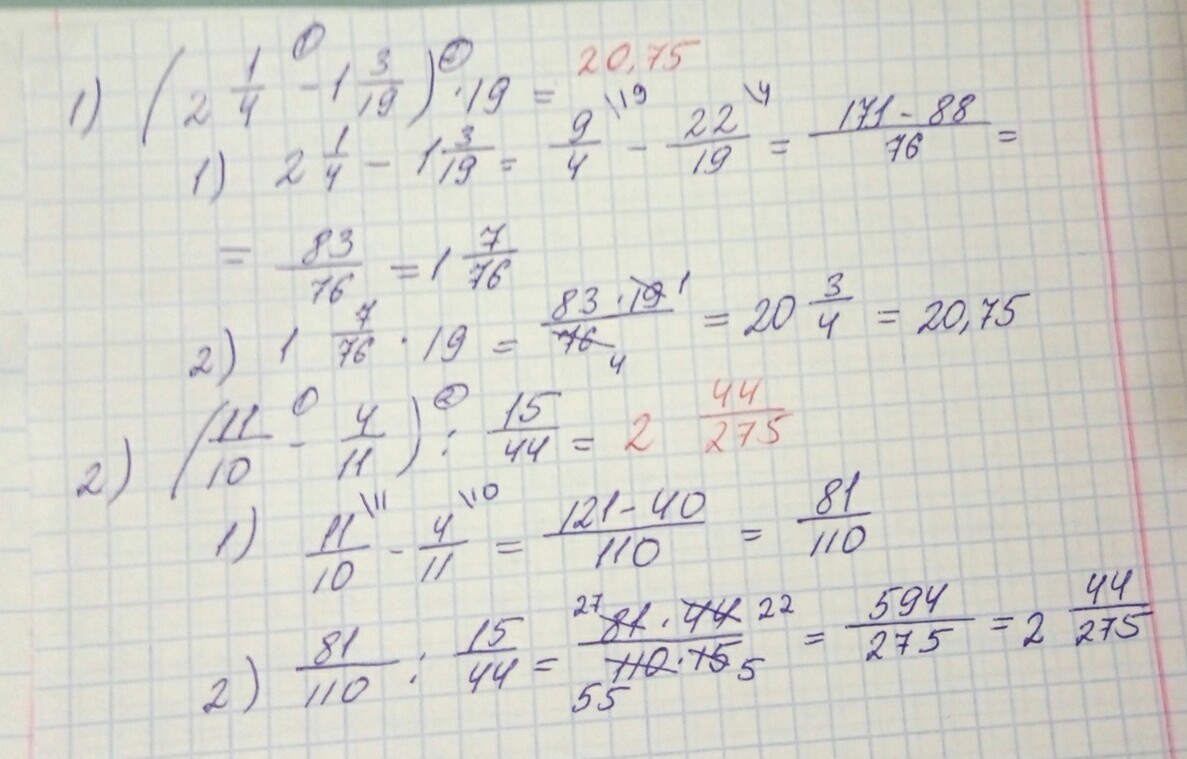 1) (2 1/4 - 1 3/19) · 19 = 20,75
1) 2 1/4 - 1 3/19 = 9/4 \19 - 22/19 \4 = 171-88/76 =
= 83/76 = 1 7/76
2) 1 7/76 · 19 = 83·19 1/76 4 = 20 3/4 = 20,75
2) (11/10 - 4/11) : 15/44 = 2 44/275
1) 11/10 \11 - 4/11 \10 = 121-40/110 = 81/110
2) 81/110 : 15/44 = 27 81·44 22/55 110·15 5 = 594/275 = 2 44/275